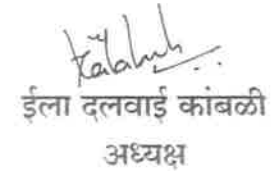 ईला दलवाई कांबळी
अध्यक्ष